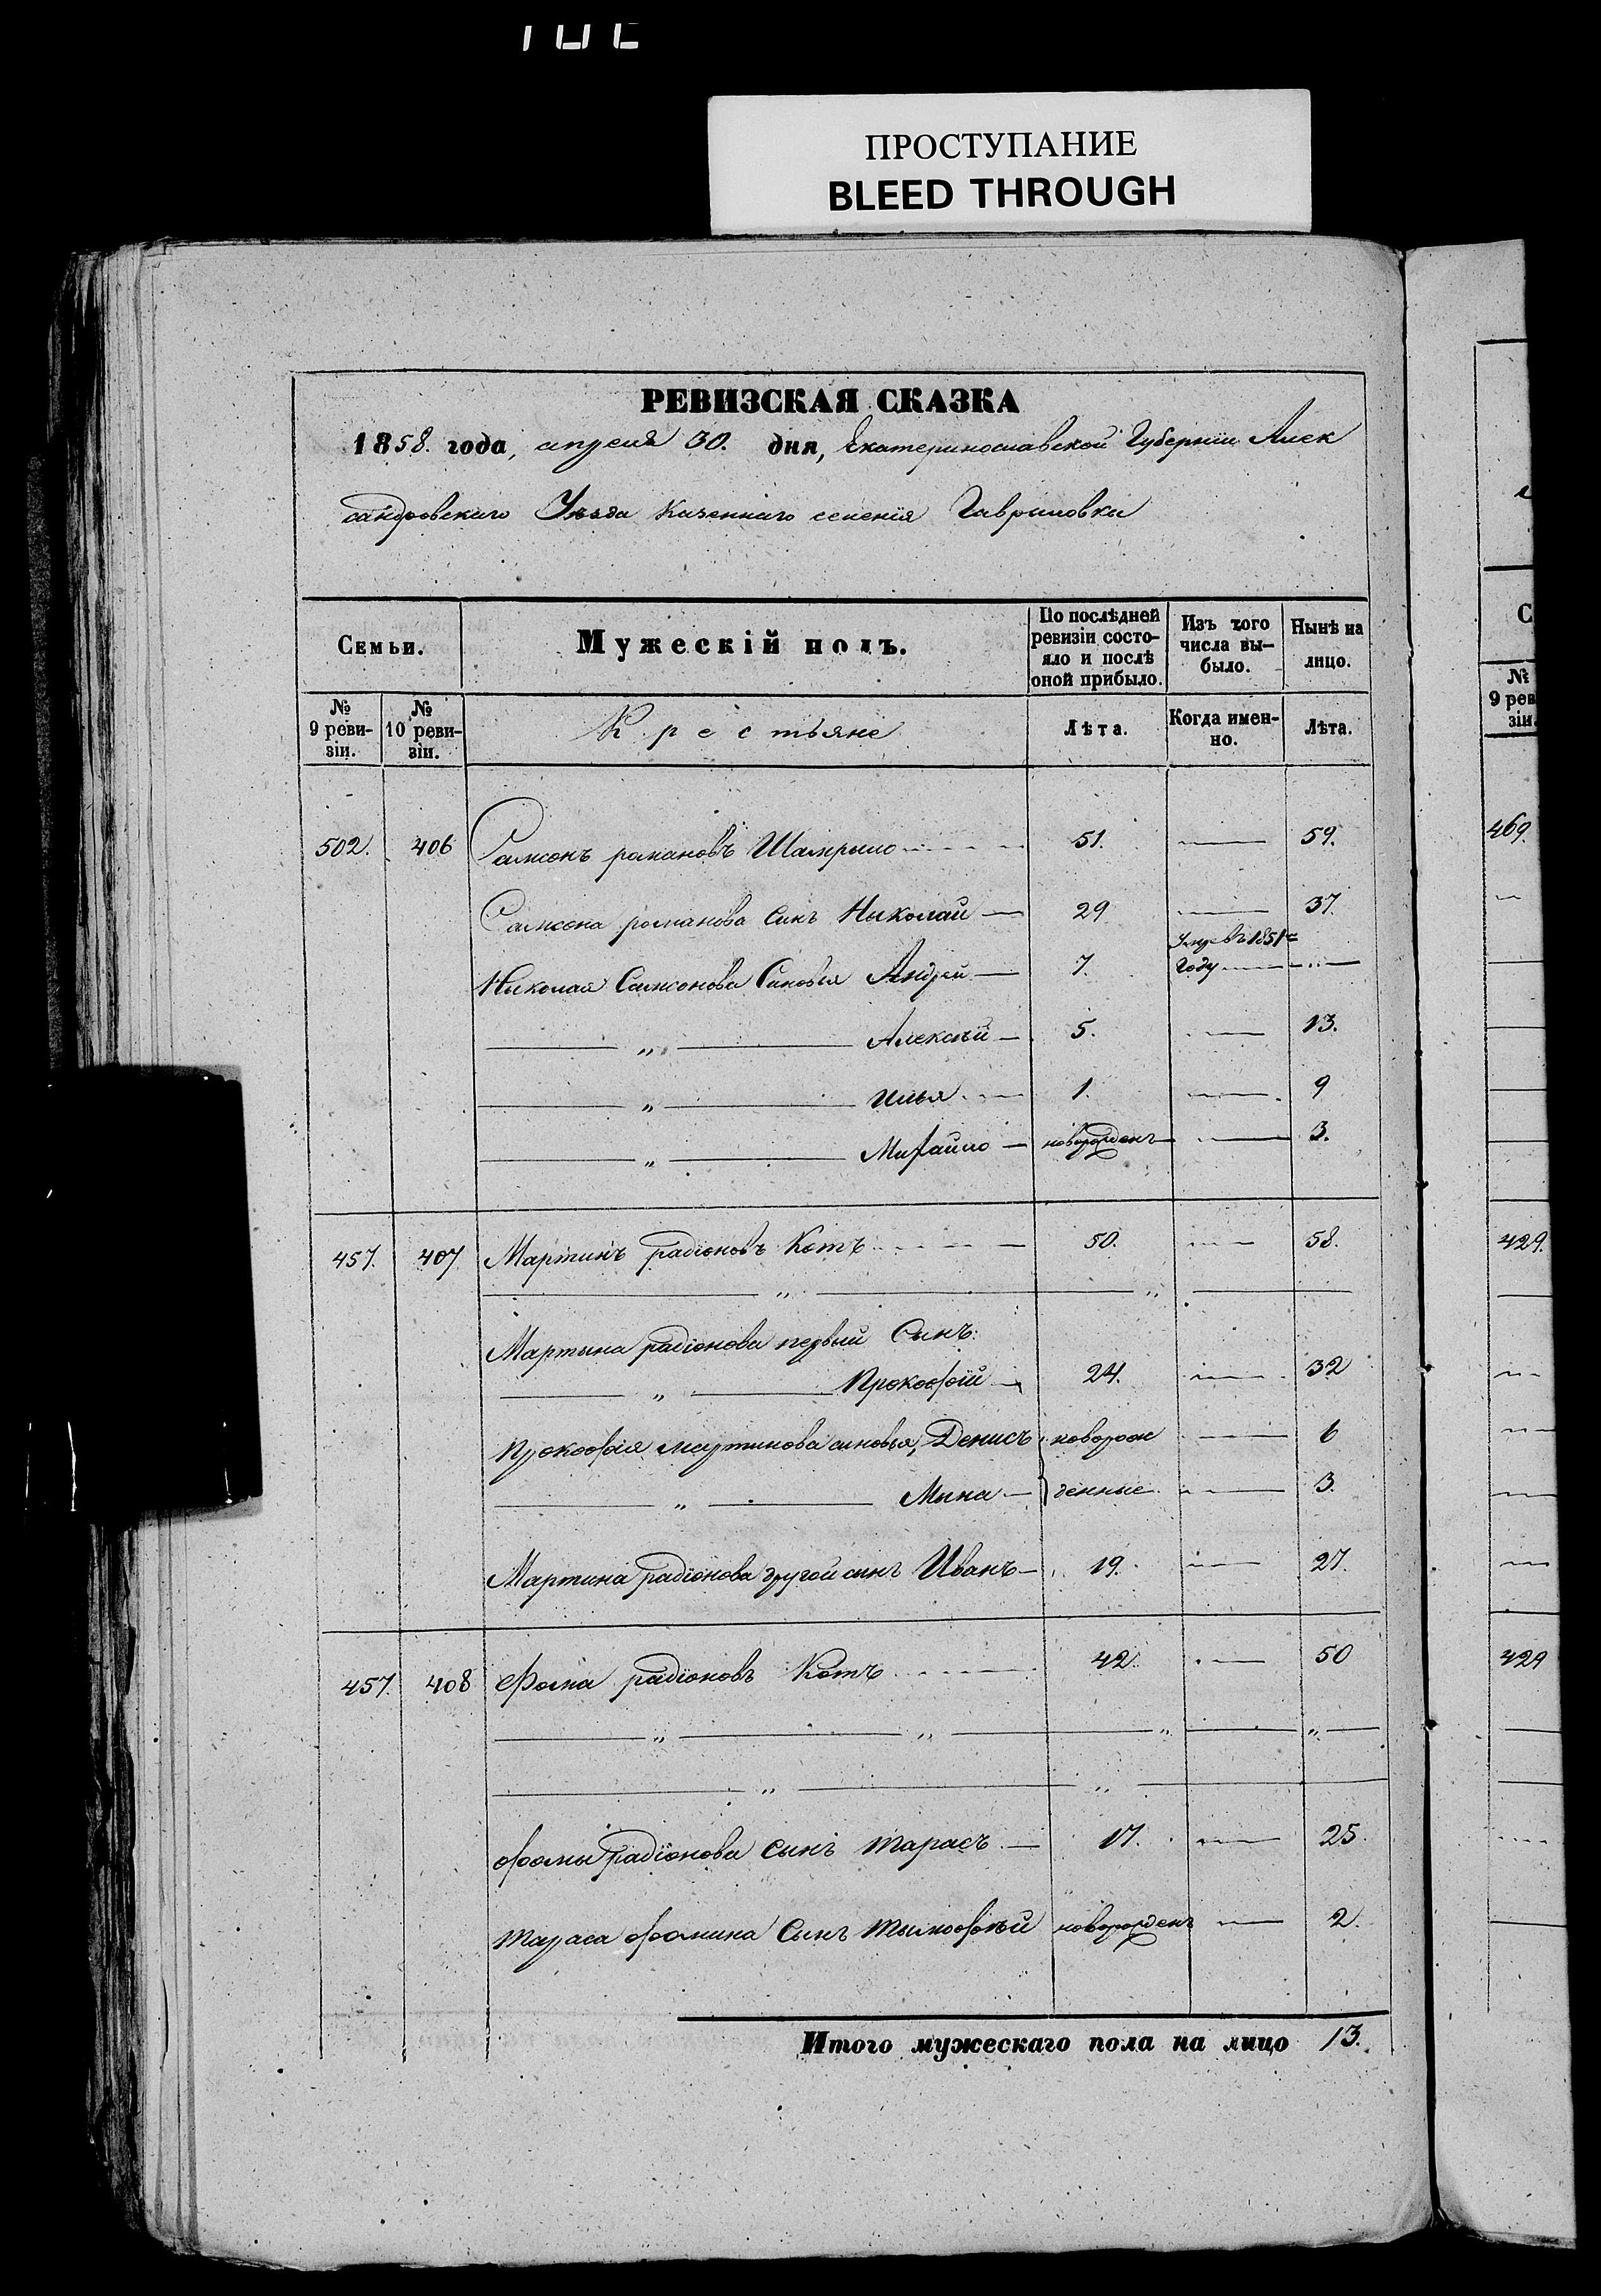 ПРОСТУПАНИЕ
BLEED THROUGH
РЕВИЗСКАЯ СКАЗКА
1858. года, апреля 30. дня, Екатеринославской Губернiи Алек
сандровскаго Уѣзда казеннаго селенiя Гавриловки
Семьи. Мужескiй полъ. По послѣдней ревизiи состояло и послѣ оной прибыло. Изъ того числа выбыло. Нынѣ на лицо.
№ 9 ревизiи. № 10 ревизiи. Крестьяне Лѣта. Когда именно. Лѣта.
502. 406 Самсонъ романовъ 51. 59.
Самсона романова Синъ Николай 29 37.
Николая Самсонова Синовья Андрей 7. Умре въ 1851м Году
" Алексѣй 5. 13.
" Илья 1. 9
" Михайло новорожденъ 3.
457. 407 Мартинъ радiоновъ Котъ 50. 58.
" "
Мартына радiонова первый Сынъ:
" Прокофiй 24. 32
Прокофiя мартинова синовья, Денисъ новорож 6
" Мына денные 3.
Мартина радiонова другой синъ Иванъ 19. 27.
457. 408 Фома радiоновъ Котъ 42. 50
" " " "
" "
фомы радiонова Сынъ тарасъ 17. 25.
тараса фомина Сынъ тымофѣй новорожденъ 2.
Итого мужескаго пола на лицо 13.
С
№
9 рев
зiи.
469.
429.
429